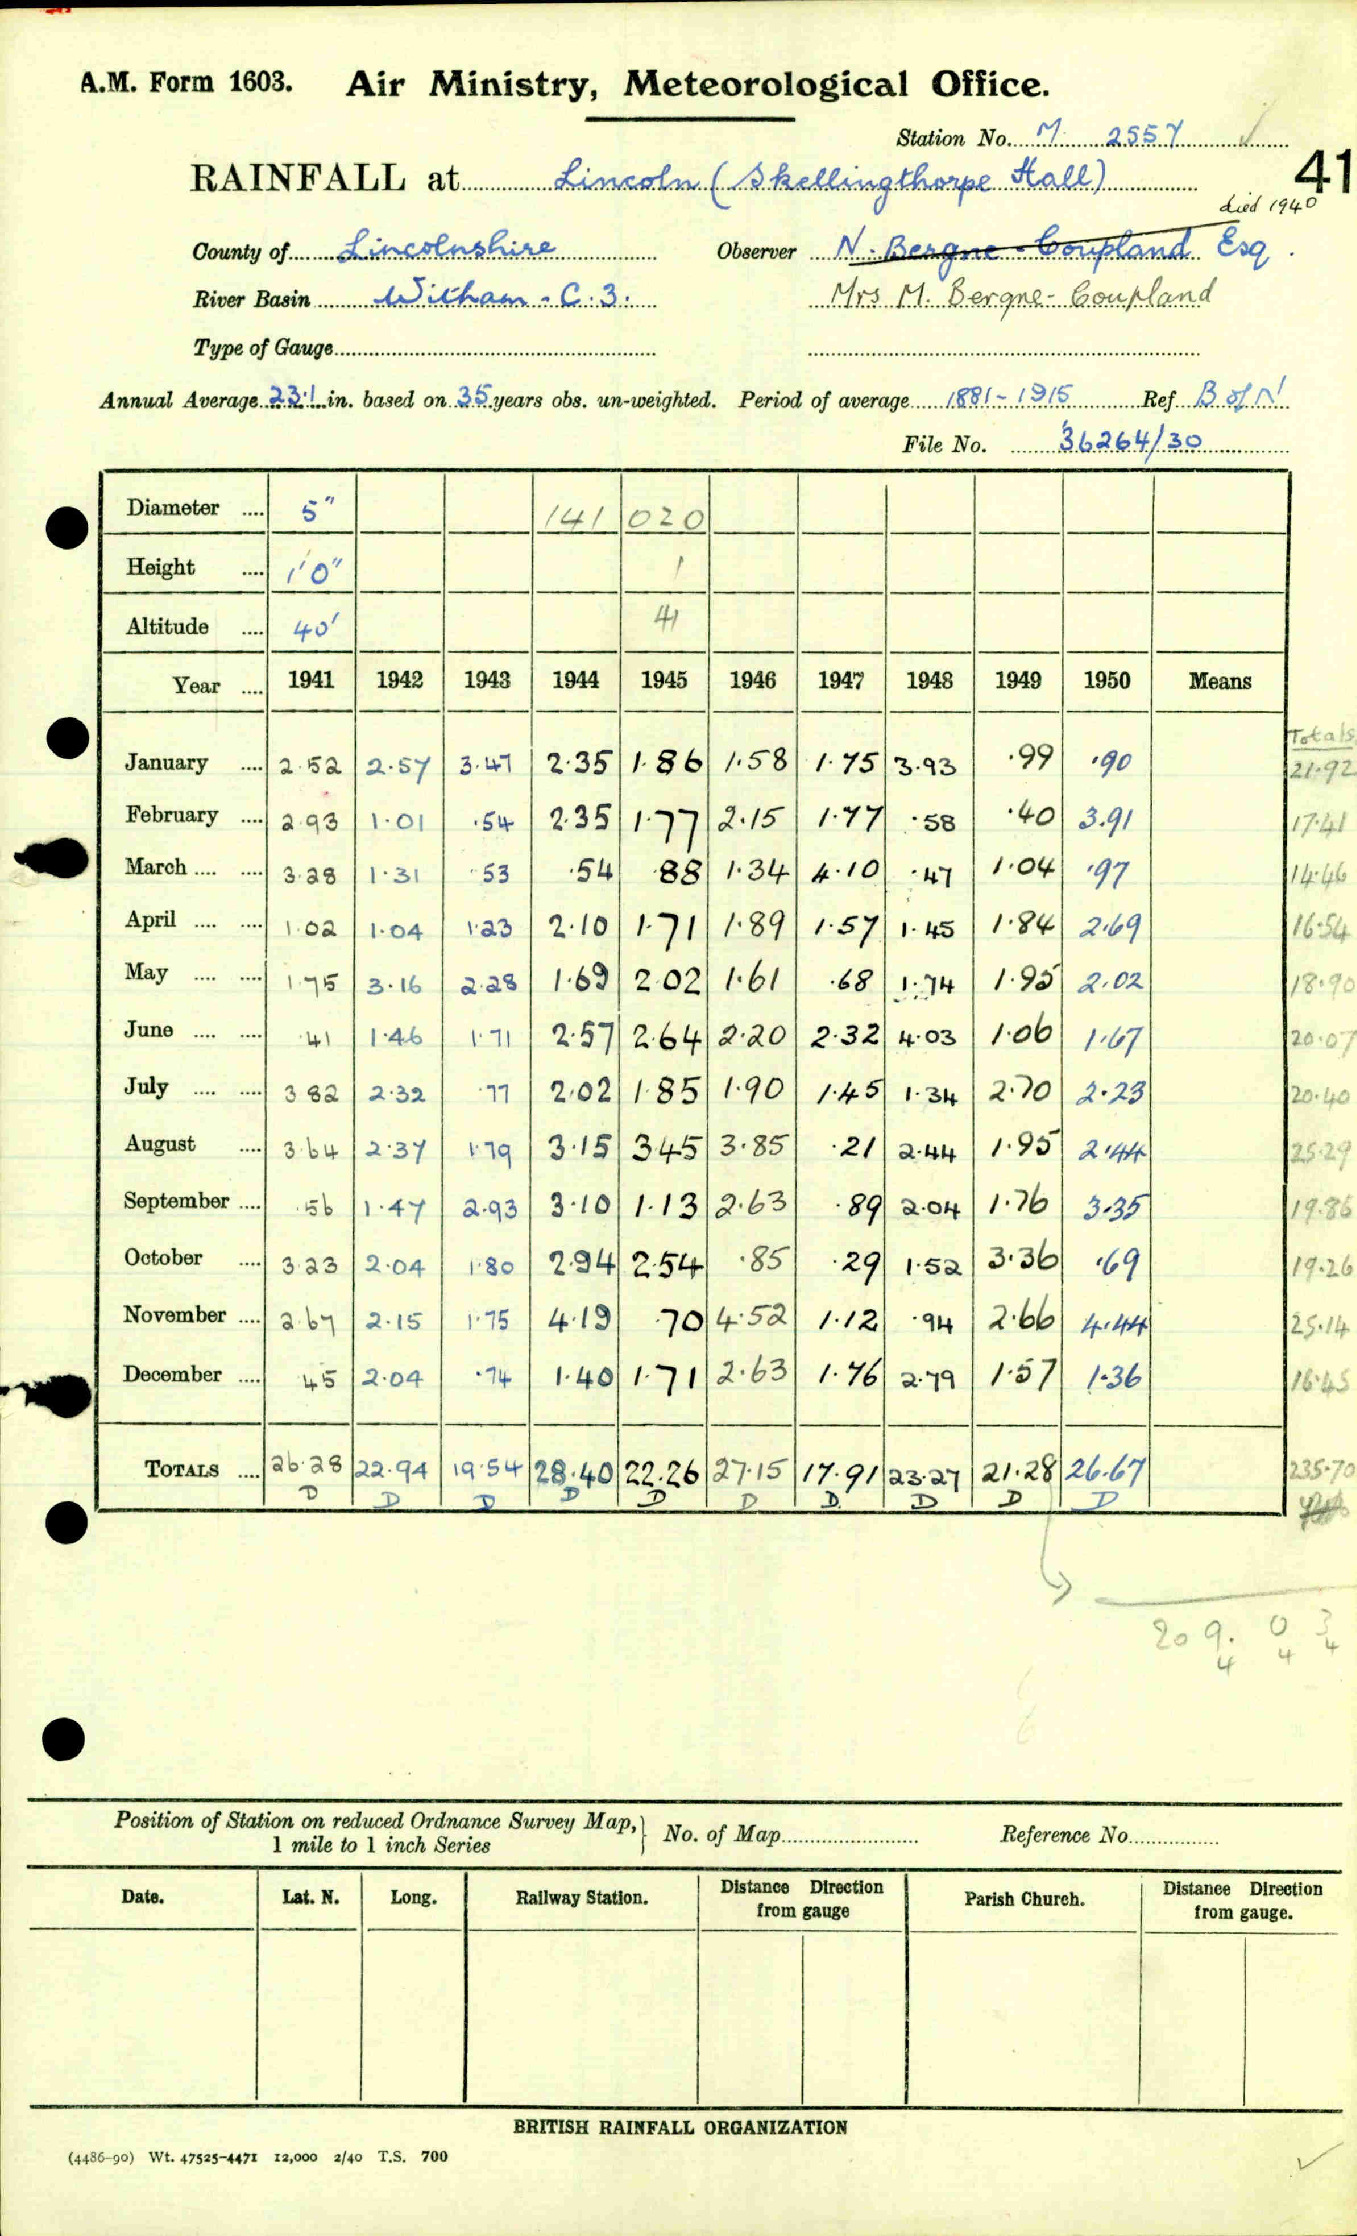 A.M. Form 1603. Air Ministry, Meteorological Office.
Station No. M 2557
41
RAINFALL at Lincoln (Skellingthorpe Hall)
died 1940
County of Lincolnshire Observer N. Bergne-Coupland Esq.
River Basin Witham - C.3. Mrs M. Bergne-Coupland
Type of Gauge
Annual Average 23.1 in. based on 35 years obs. un-weighted. Period of average 1881-1915 Ref B of N
File No. 36264/30
Diameter .... 5" 141 020
Height .... 1'0" 1
Altitude .... 40' 41
Year .... 1941 1942 1943 1944 1945 1946 1947 1948 1949 1950 Means
Totals
January .... 2.52 2.57 3.47 2.35 1.86 1.58 1.75 3.93 .99 .90 21.92
February .... 2.93 1.01 .54 2.35 1.77 2.15 1.77 .58 .40 3.91 17.41
March .... .... 3.28 1.31 .53 .54 .88 1.34 4.10 .47 1.04 .97 14.46
April .... .... 1.02 1.04 1.23 2.10 1.71 1.89 1.57 1.45 1.84 2.69 16.54
May .... .... 1.75 3.16 2.28 1.69 2.02 1.61 .68 1.74 1.95 2.02 18.90
June .... .... .41 1.46 1.71 2.57 2.64 2.20 2.32 4.03 1.06 1.67 20.07
July .... .... 3.82 2.32 .77 2.02 1.85 1.90 1.45 1.34 2.70 2.23 20.40
August .... 3.64 2.37 1.79 3.15 3.45 3.85 .21 2.44 1.95 2.44 25.29
September .... .56 1.47 2.93 3.10 1.13 2.63 .89 2.04 1.76 3.35 19.86
October .... 3.23 2.04 1.80 2.94 2.54 .85 .29 1.52 3.36 .69 19.26
November .... 2.67 2.15 1.75 4.19 .70 4.52 1.12 .94 2.66 4.44 25.14
December .... .45 2.04 .74 1.40 1.71 2.63 1.76 2.79 1.57 1.36 16.45
TOTALS .... 26.28 22.94 19.54 28.40 22.26 27.15 17.91 23.27 21.28 26.67 235.70
D D D D D D D D D D
209. 0 3
4 4 4
Position of Station on reduced Ordnance Survey Map,
1 mile to 1 inch Series
No. of Map Reference No.
Date. Lat. N. Long. Railway Station. Distance Direction from gauge Parish Church. Distance Direction from gauge.
BRITISH RAINFALL ORGANIZATION
(4486-90) Wt. 47525-4471 12,000 2/40 T.S. 700